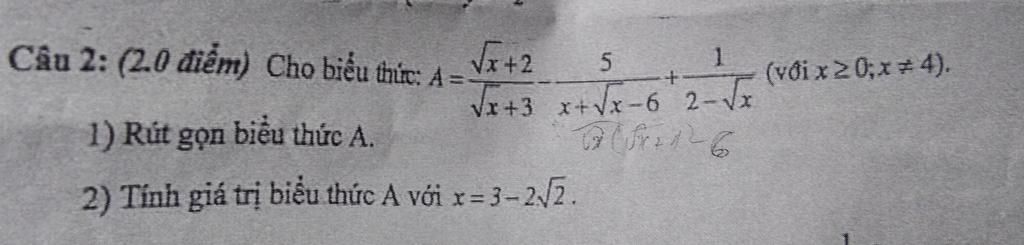 Câu 2: (2.0 điểm) Cho biểu thức: A = \frac{\sqrt{x}+2}{\sqrt{x}+3} - \frac{5}{x+\sqrt{x}-6} + \frac{1}{2-\sqrt{x}} (với x ≥ 0; x ≠ 4).
√x(√x+1)-6
1) Rút gọn biểu thức A.
2) Tính giá trị biểu thức A với x = 3 - 2√2.